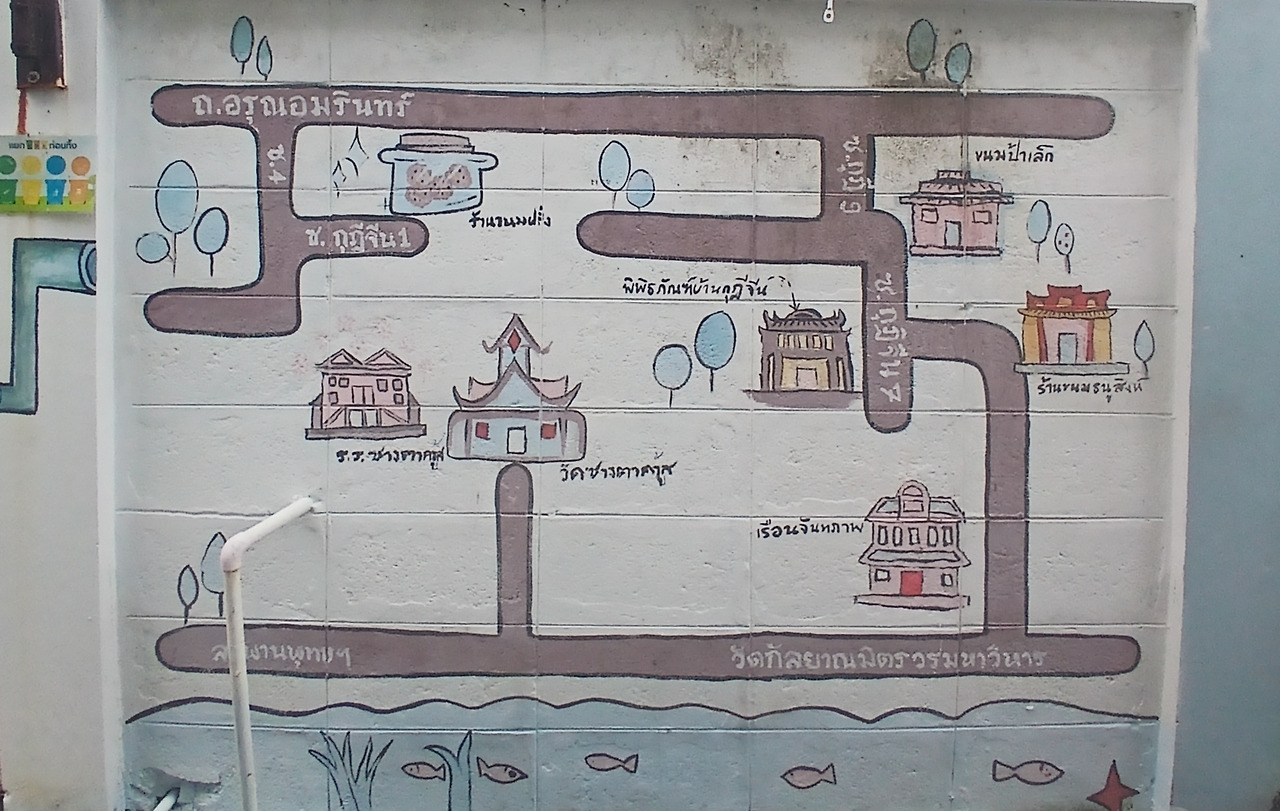 ถ.อรุณอมรินทร์
แยก ก่อนทิ้ง
ซ.4
ซ.กุฎี 9
ขนมป้าเล็ก
ร้านขนมฝรั่ง
ซ. กุฎีจีน1
พิพิธภัณฑ์บ้านกุฎีจีน
ซ.กุฎีจีน 7
ร้านขนมธนูสิงห์
ร.ร.ซางตาครู้ส
วัดซางตาครู้ส
เรือนจันทภาพ
สะพานพุทธฯ
วัดกัลยาณมิตรวรมหาวิหาร